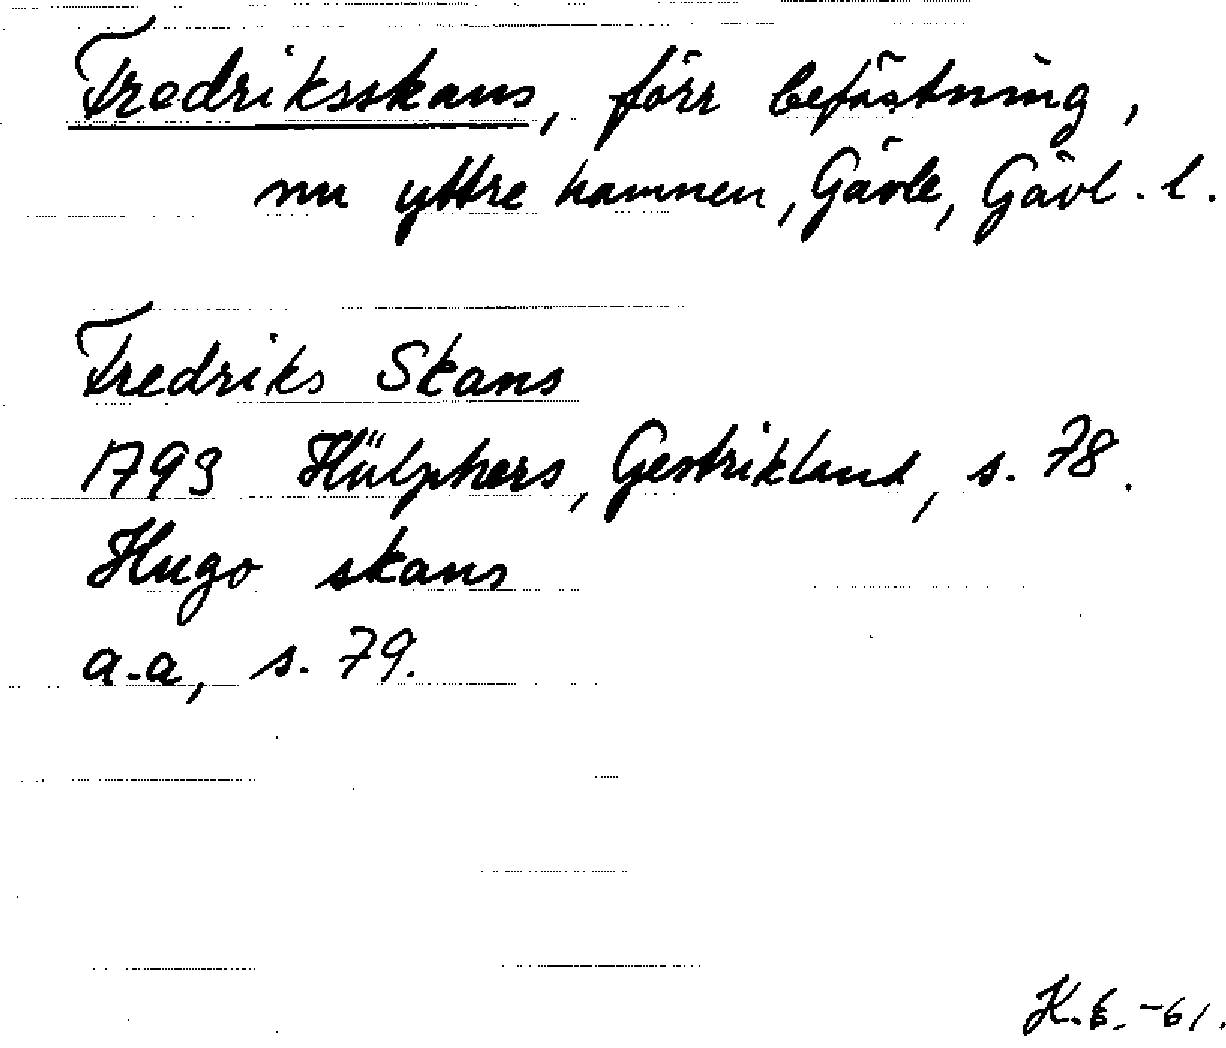 Fredriksskans, förr befästning,
nu yttre hamnen, Gävle, Gävl. l.
Fredriks Skans
1793 Hülphers, Gestrikland, s. 78.
Hugo skans
a.a, s. 79.
K.E. -61.